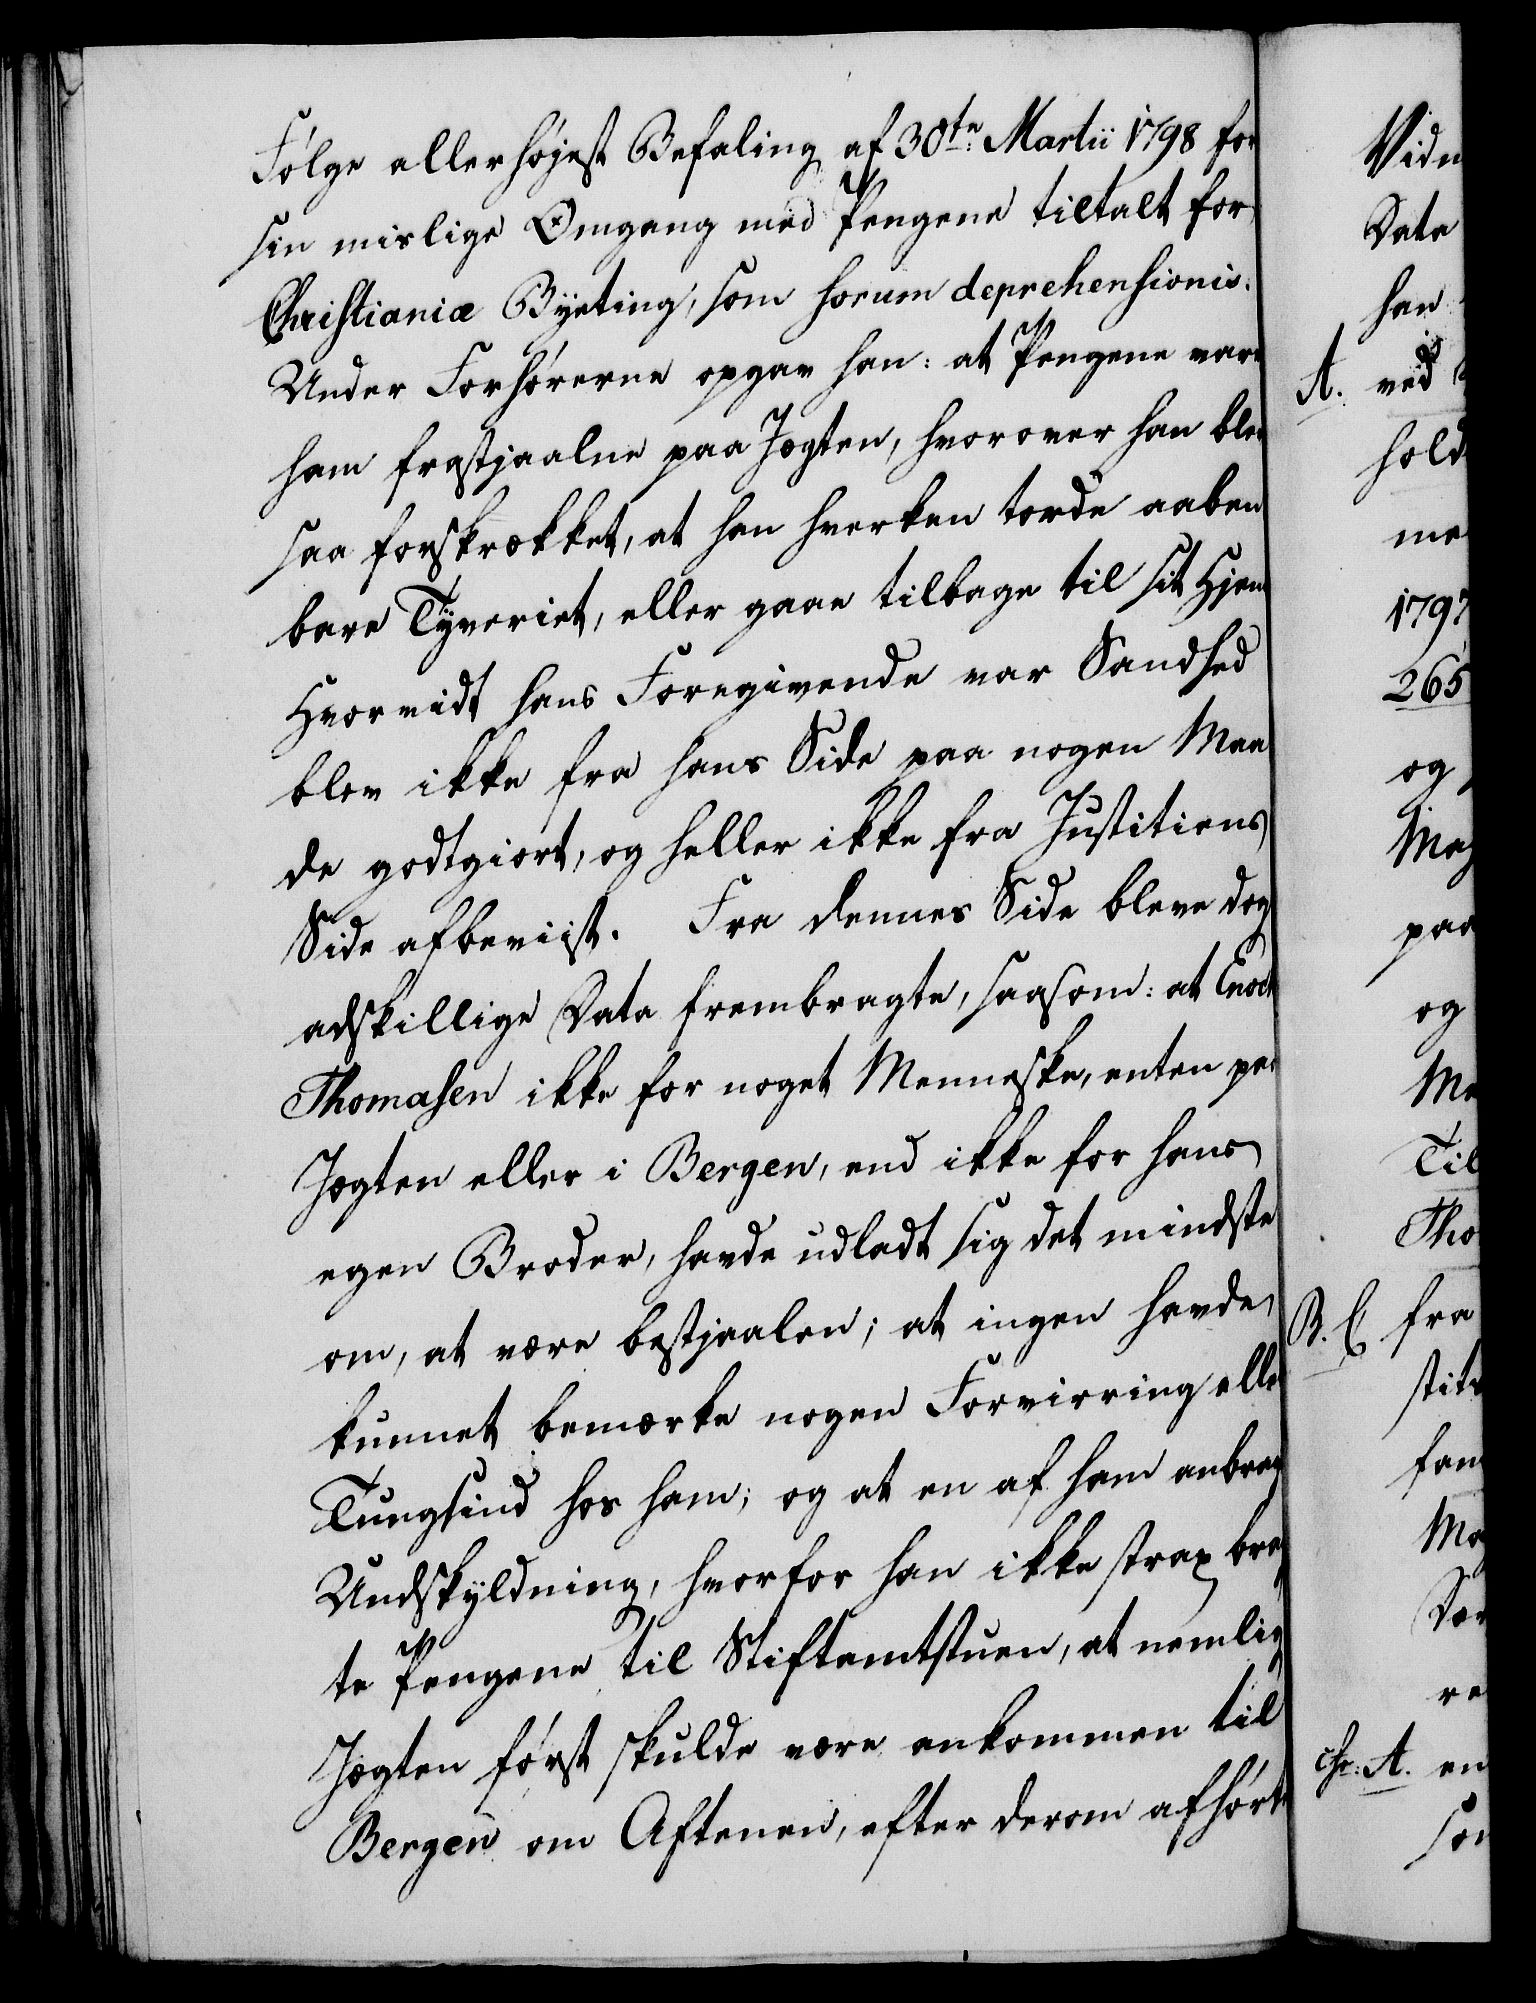 Følge allerhøjest Befaling af 30te Martii 1798 for
sin mislige Omgang med Pengene tiltalt for
Christianiæ Byeting, som forum deprehensionis.
Under Forhørerne opgav han: at Pengene vare
ham frastjaalne paa Jægten, hvorover han blev
saa forskrækket, at han hverken torde aaben
bare Tyveriet, eller gaae tilbage til sit Hjem
Hvorvidt hans Foregivende var Sandhed
blev ikke fra hans Side paa nogen Maa
de godtgiort, og heller ikke fra Justitiens
Side afbeviist. Fra dennes Side bleve dog
adskillige Data frembragte, saasom: at Enoch
Thomasen ikke for noget Menneske, enten paa
Jægten eller i Bergen, end ikke for hans
egen Broder, havde udladt sig det mindste
om, at være bestjaalen; at ingen havde
kunnet bemærke nogen Forvirring eller
Tungsind hos ham; og at en af ham anbragt
Undskyldning, hvorfor han ikke strax brag
te Pengene til Stiftamtstuen, at nemlig
Jægten først skulde være ankommen til
Bergen om Aftenen, efter derom afhørte
Vidn
Data
han
A. ved
hold
me
1797
265
og
Maj
paa
og
Me
Til
Tho
B. C fra
stit
fan
Mo
Dan
re
cfr: A. en
som